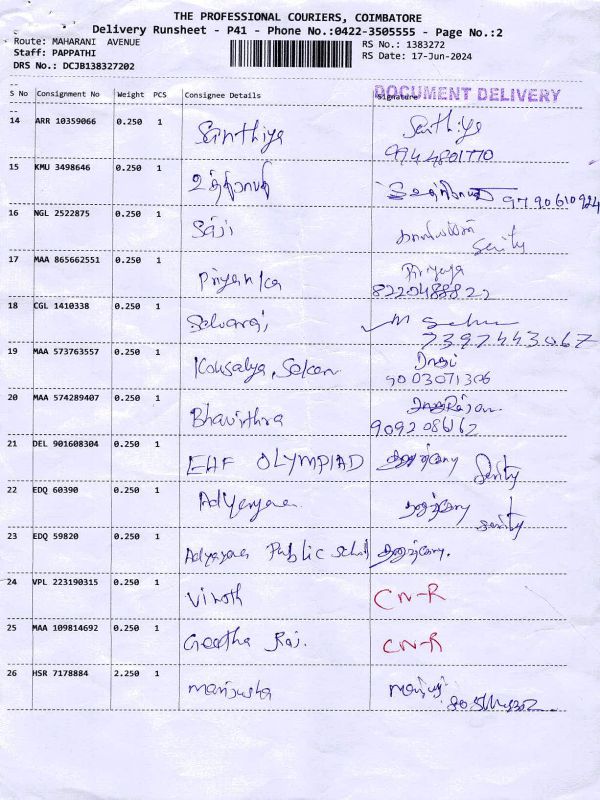 THE PROFESSIONAL COURIERS, COIMBATORE
Delivery Runsheet - P41 - Phone No.:0422-3505555 - Page No.:2
Route: MAHARANI AVENUE
RS No.: 1383272
Staff: PAPPATHI
RS Date: 17-Jun-2024
DRS No.: DCJB138327202
DOCUMENT DELIVERY
S No Consignment No Weight PCS Consignee Details Signature
14 ARR 10359066 0.250 1 Santhiya Santhiya
9944801770
15 KMU 3498646 0.250 1 9790610924
16 NGL 2522875 0.250 1 Saji
Serity
17 MAA 865662551 0.250 1 Priyanka Priyaya
8220488822
18 CGL 1410338 0.250 1 Selvaraj M
7397443067
19 MAA 573763557 0.250 1 Kousalya, Sekar
9003071306
20 MAA 574289407 0.250 1 Bhavirthra
21 DEL 901608304 0.250 1 EHF OLYMPIAD Serity
22 EDQ 60390 0.250 1
Serity
23 EDQ 59820 0.250 1 Public
24 VPL 223190315 0.250 1 Vinoth CN-R
25 MAA 109814692 0.250 1 Geetha Raj. CN-R
26 HSR 7178884 2.250 1 manjusha